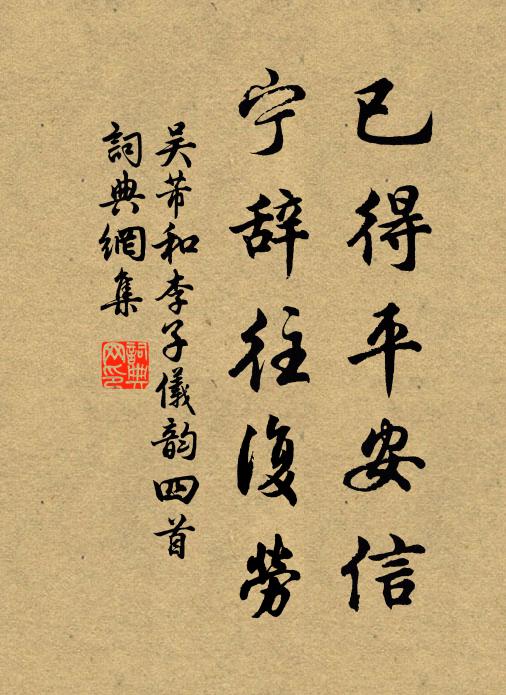 已得平安信
宁辞往復勞
吴芾和李子儀韵四首
詞典網集
詞典网印